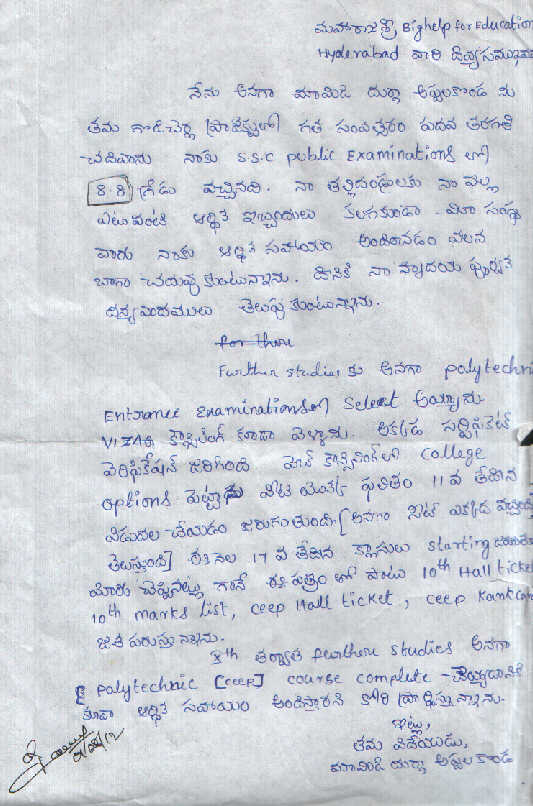 మహారాజశ్రీ Bighelp for Education
Hyderabad వారి దివ్యసముఖమునకు
నేను అనగా మామిడి దుర్గా అప్పలకొండ ను
తమ గొడిచెర్ల ప్రాజెక్టులో గత సంవత్సరం పదవ తరగతి
చదివాను నాకు S.S.C public Examinations లో
8.8 గ్రేడు వచ్చినది. నా తల్లిదండ్రులకు నా వల్ల
ఎటువంటి ఆర్థిక ఇబ్బందులు కలగకుండా మీ సంస్థ
వారు నాకు ఆర్థిక సహాయం అందించడం వలన
బాగా చదువుకుంటున్నాను. దానికి నా హృదయ పూర్వక
ధన్యవాదములు తెలుపుకుంటున్నాను.
for thou
Further studies కు అనగా polytechnic
Entrance Examinationsలో Select అయ్యాను
VIZAG కౌన్సిలింగ్ కూడా వెళ్ళాను. అక్కడ సర్టిఫికెట్
వెరిఫికేషన్ జరిగింది కౌన్సిలింగ్ లో college
options పెట్టాను వీటి యొక్క ఫలితం 11 వ తేదీన
విడుదల చేయడం జరుగుతుంది. [అనగా సీట్ ఎక్కడ వచ్చింది
తెలుస్తుంది] ఈ నెల 17 వ తేదీన క్లాసులు starting
మీరు చెప్పినట్లు గానే ఈ పత్రం తో పాటు 10th Hall ticket
10th marks list, ceep Hall ticket, ceep Rank Card
జత పరుస్తున్నాను.
10th తర్వాత further studies అనగా
[ polytechnic [ceep] course complete చేయ్యడానికి
కూడా ఆర్థిక సహాయం అందిస్తారని కోరి ప్రార్థిస్తున్నాను.
ఇట్లు,
తమ విధేయుడు,
మామిడి దుర్గా అప్పలకొండ